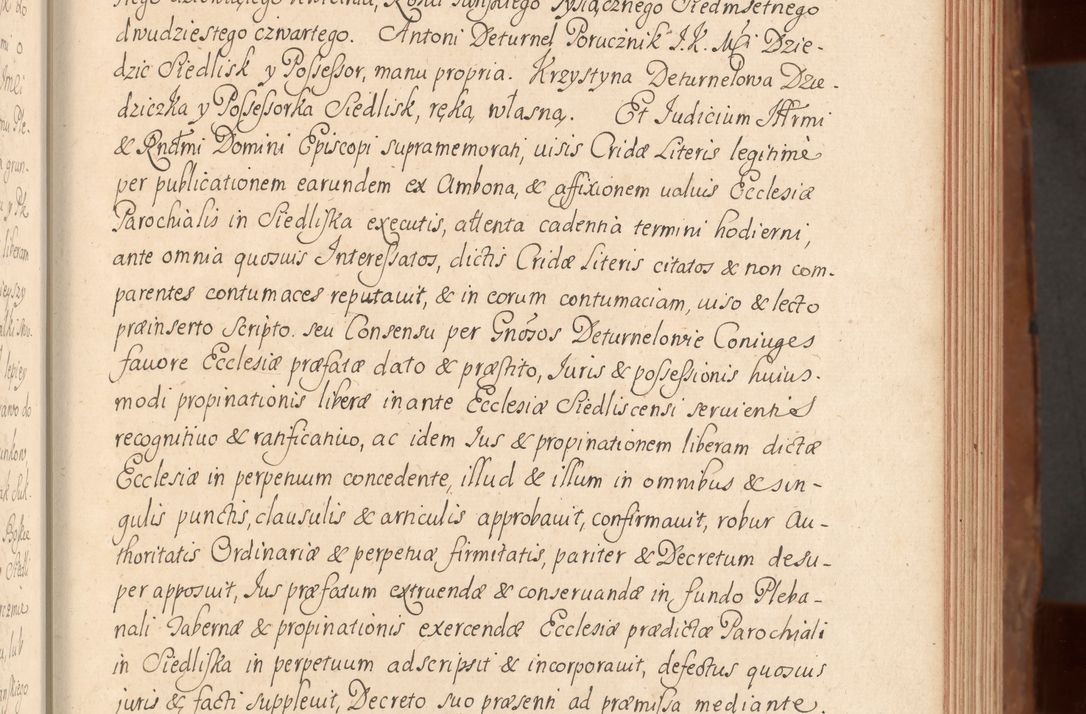 tego dziewiątego kwietnia, Roku Pańskiego Tysiącznego Siedmsetnego
dwudziestego czwartego. Antoni Deturnel Porucznik J. K. Mći Dzie-
dzic Siedlisk y Possessor, manu propria. Krzystyna Deturnelowa Dzie-
dziczka y Possessorka Siedlisk, ręką własną. Et Judicium Illrmi
& Rndmi Domini Episcopi supramemorati, visis Cridæ Literis legitimè
per publicationem earundem ex Ambona, & affixionem valvis Ecclesiæ
Parochialis in Siedliska executis, attenta cadentia termini hodierni,
ante omnia quosvis Interessatos, dictis Cridæ Literis citatos & non com-
parentes contumaces reputavit, & in eorum contumaciam, viso & lecto
præinserto Scripto. seu Consensu per Gnosos Deturnelowie Coniuges
favore Ecclesiæ præfatæ dato & præstito, Juris & possessionis huius-
modi propinationis liberæ in ante Ecclesiæ Siedliscensi servientis
recognitivo & ratificativo, ac idem Jus & propinationem liberam dictæ
Ecclesiæ in perpetuum concedente, illud & illum in omnibus & sin-
gulis punctis, clausulis & articulis approbavit, confirmavit, robur Au-
thoritatis Ordinariæ & perpetuæ firmitatis, pariter & Decretum desu-
per apposuit, Jus præfatum extruendæ & conservandæ in fundo Pleba-
nali Tabernæ & propinationis exercendæ Ecclesiæ prædictæ Parochiali
in Siedliska in perpetuum adscripsit & incorporavit, defectus quosvis
juris & facti supplevit, Decreto suo præsenti ad præmissa mediante.